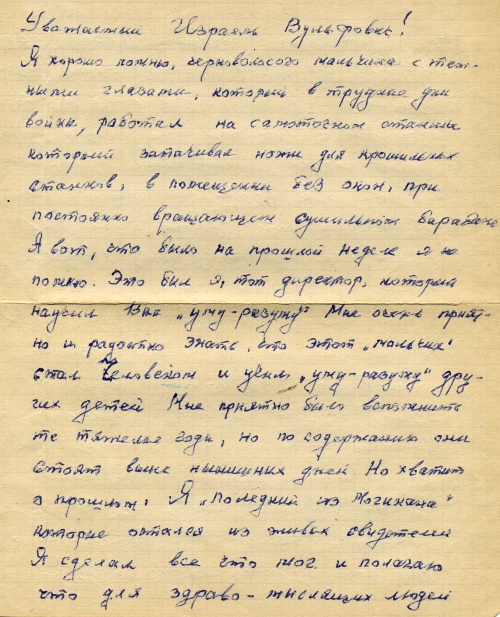 Уважаемый Израель Вульфович!
Я хорошо помню, черноволосого мальчика с тем-
ными глазами, который в трудные дни
войны, работал на самоточном станке
который затачивал ножи для крошильных
станков, в помещении без окон, при
постоянно вращающемся сушильном барабане
А вот, что было на прошлой неделе я не
помню. Это был я, тот директор, который
научил Вас „уму-разуму" Мне очень прият-
но и радостно знать, что этот „мальчик"
стал Человеком и учил „уму-разуму" дру-
гих детей Мне приятно было вспомнить
те тяжелые годы, но по содержанию они
стоят выше нынешних дней. Но хватит
о прошлом. Я „Последний из Могикана"
которые остался из живых свидетелей
Я сделал все что мог. и полагаю
что для здраво-мыслящих людей